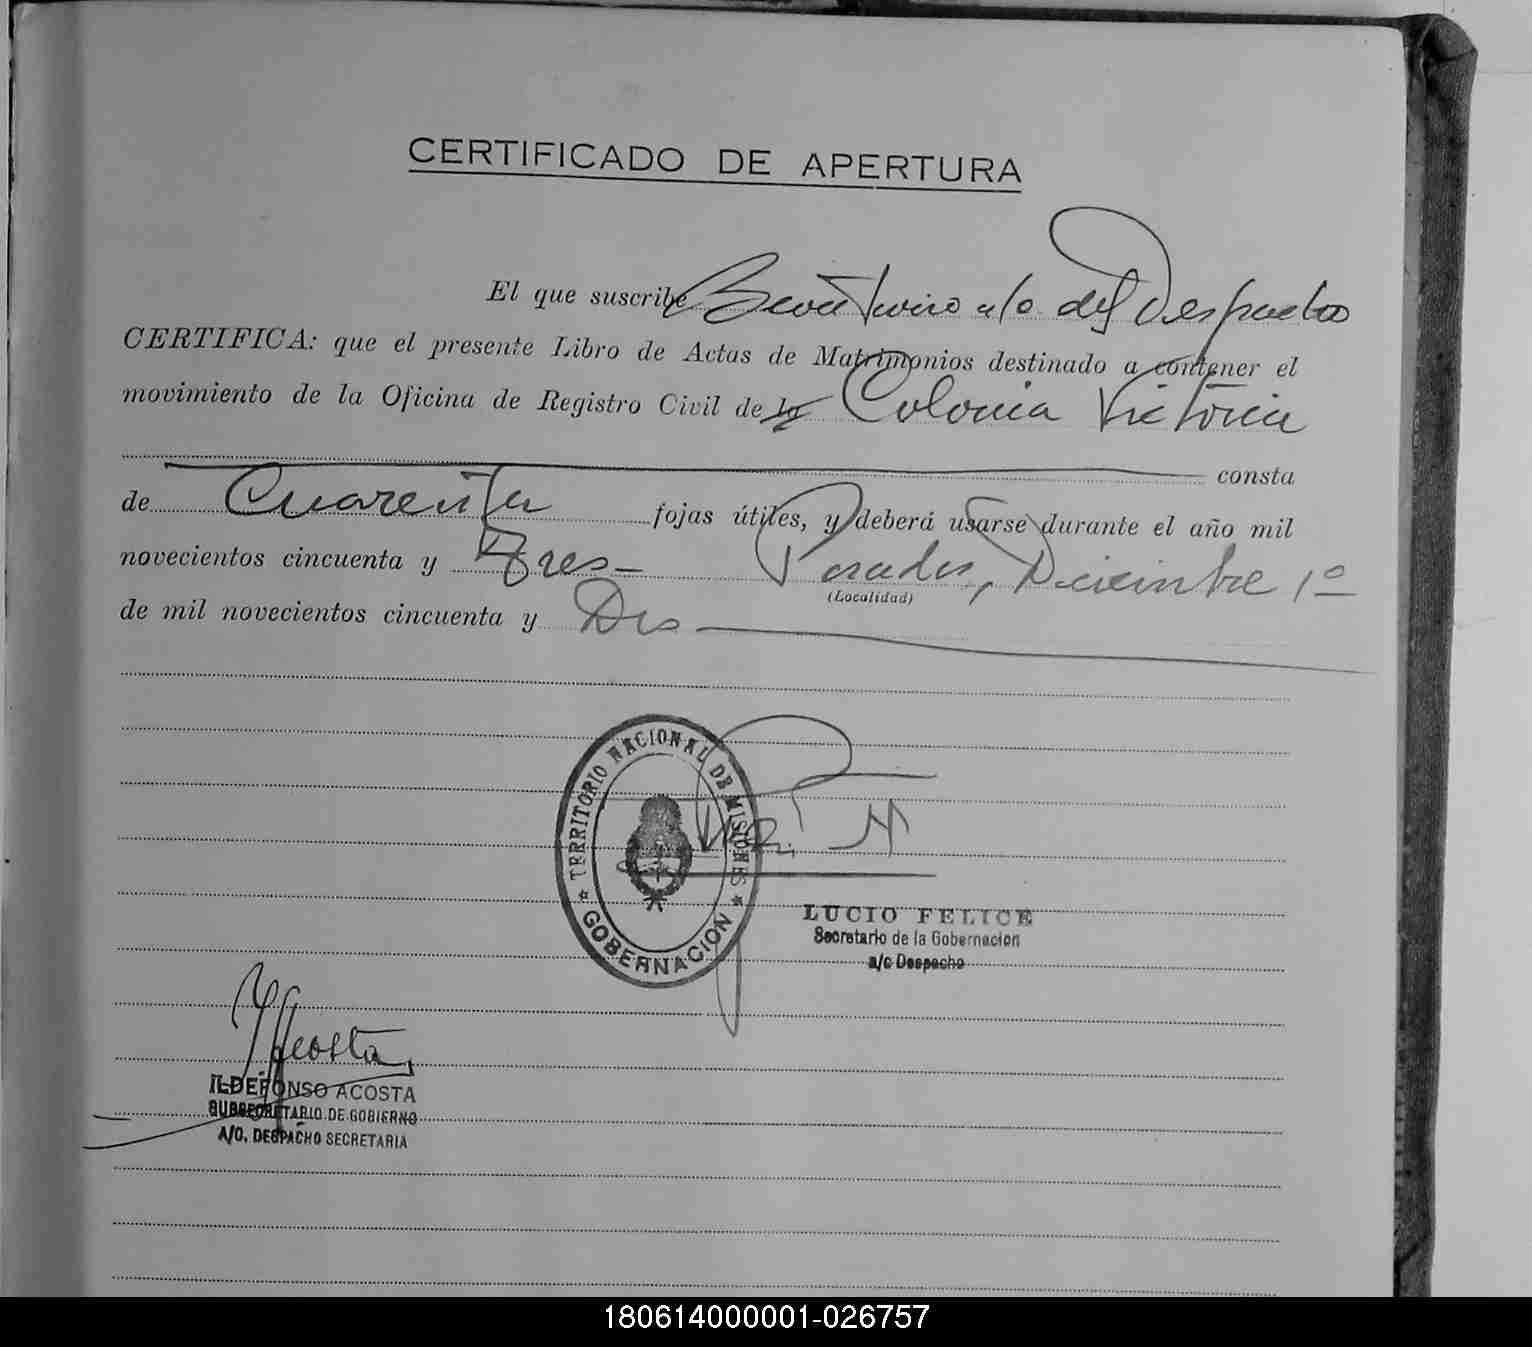 CERTIFICADO DE APERTURA
El que suscribe Secretario a/c del Despacho
CERTIFICA: que el presente Libro de Actas de Matrimonios destinado a contener el
movimiento de la Oficina de Registro Civil de la Colonia Victoria
consta
de Cuarenta fojas útiles, y deberá usarse durante el año mil
novecientos cincuenta y Tres Posadas, Diciembre 1º
(Localidad)
de mil novecientos cincuenta y Dos
TERRITORIO NACIONAL DE MISIONES
GOBERNACION
LUCIO FELICE
Secretario de la Gobernacion
a/c Despacho
Acosta
ILDEFONSO ACOSTA
SUBSECRETARIO DE GOBIERNO
A/C. DESPACHO SECRETARIA
180614000001-026757